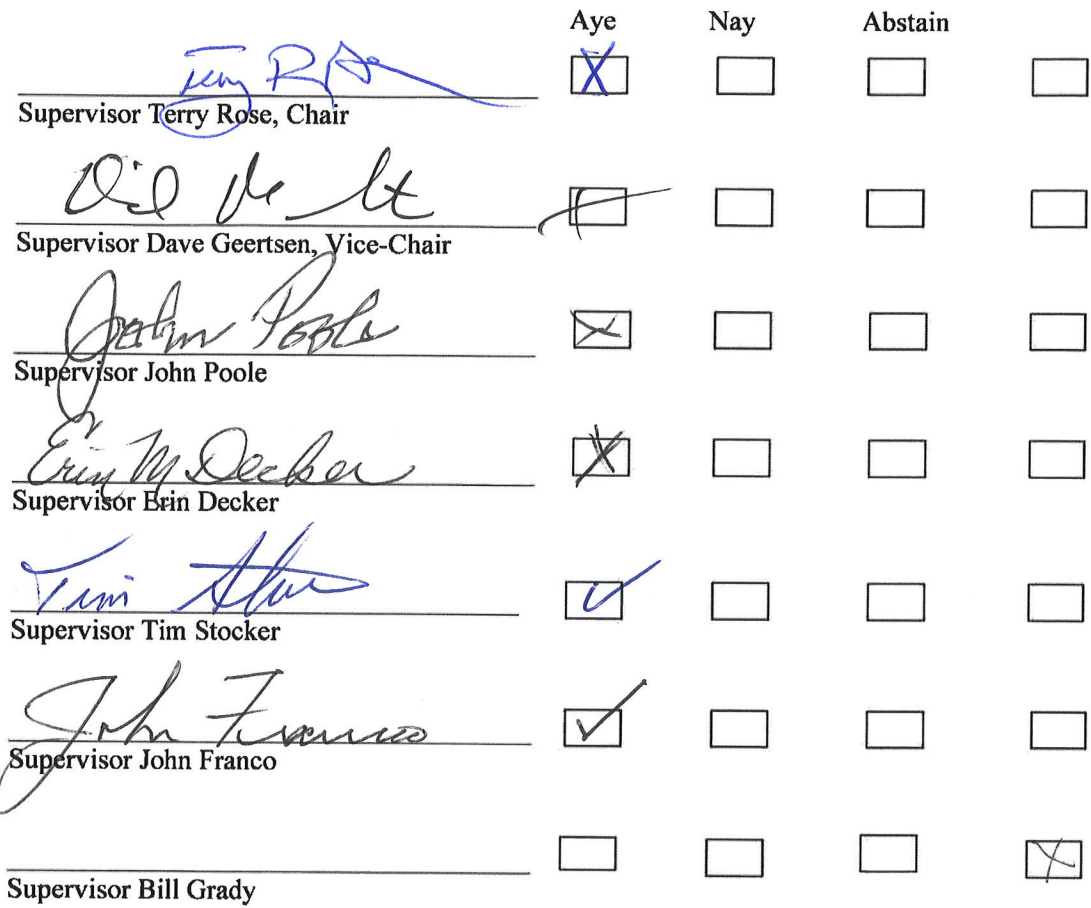 Aye Nay Abstain
Terry R
Supervisor Terry Rose, Chair
Supervisor Dave Geertsen, Vice-Chair
John Poole
Supervisor John Poole
Erin M Decker
Supervisor Erin Decker
Tim
Supervisor Tim Stocker
John Franco
Supervisor John Franco
Supervisor Bill Grady